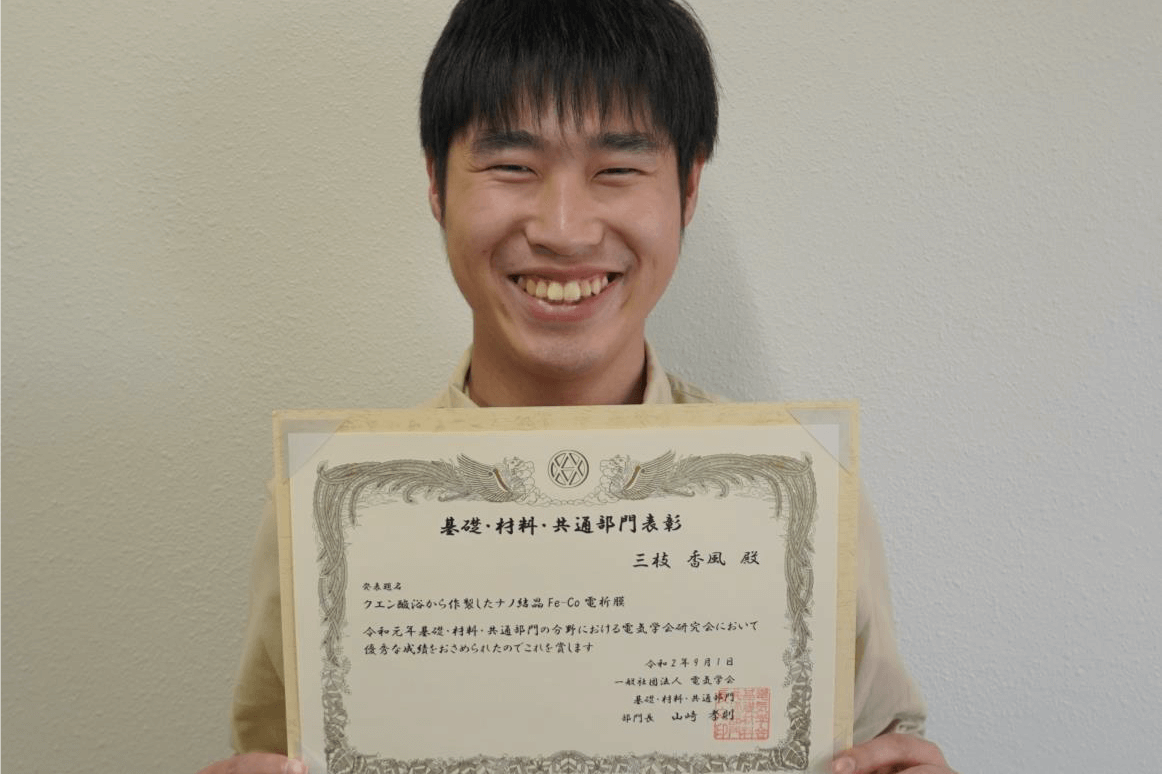 基礎・材料・共通部門表彰
三枝 香風 殿
発表題名
クエン酸浴から作製したナノ結晶Fe-Co電析膜
令和元年基礎・材料・共通部門の分野における電気学会研究会において
優秀な成績をおさめられたのでこれを賞します
令和2年9月1日
一般社団法人 電気学会
基礎・材料・共通部門
部門長 山崎 孝則